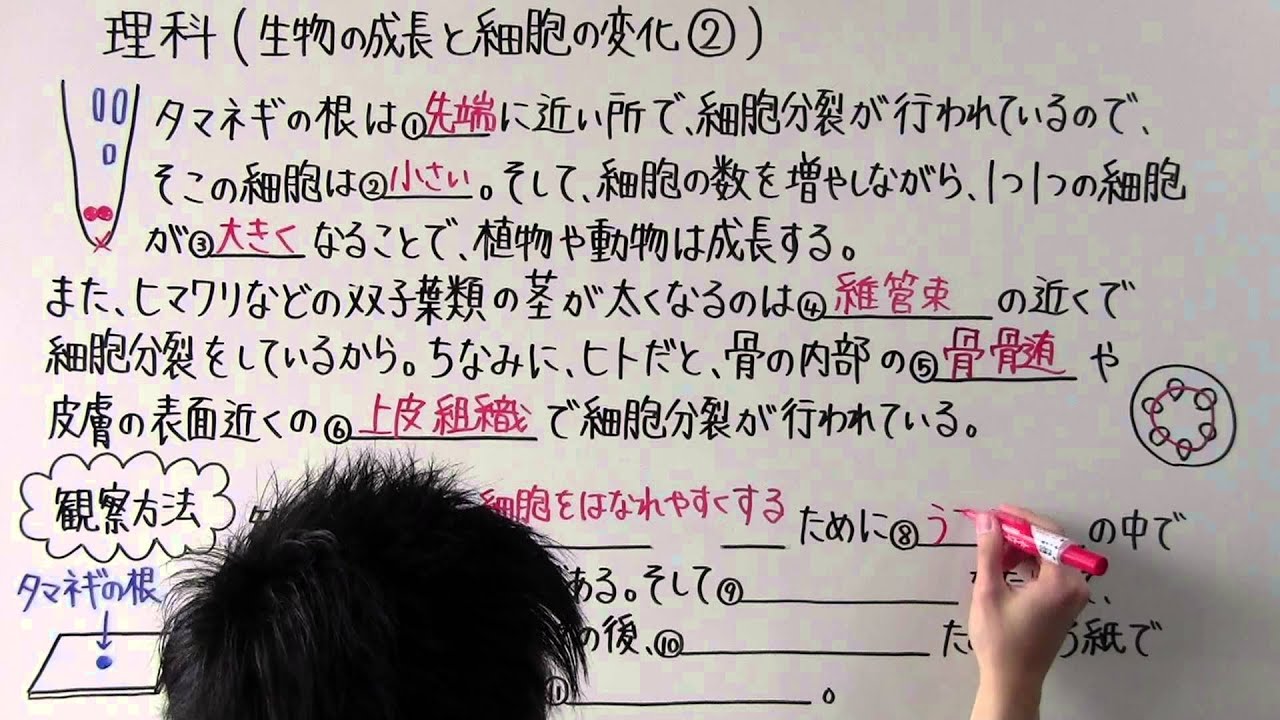 理科(生物の成長と細胞の変化②)
タマネギの根は①先端に近い所で、細胞分裂が行われているので、
そこの細胞は②小さい。そして、細胞の数を増やしながら、1つ1つの細胞
が③大きくなることで、植物や動物は成長する。
また、ヒマワリなどの双子葉類の茎が太くなるのは④維管束の近くで
細胞分裂をしているから。ちなみに、ヒトだと、骨の内部の⑤骨骨髄や
皮膚の表面近くの⑥上皮組織で細胞分裂が行われている。
観察方法
細胞をはなれやすくするために⑧う の中で
タマネギの根
ある。そして⑨
の後、⑩ 紙で
。